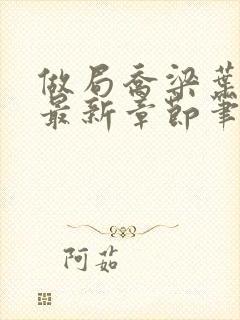 做局乔梁葉
最新章節筆
阿茹